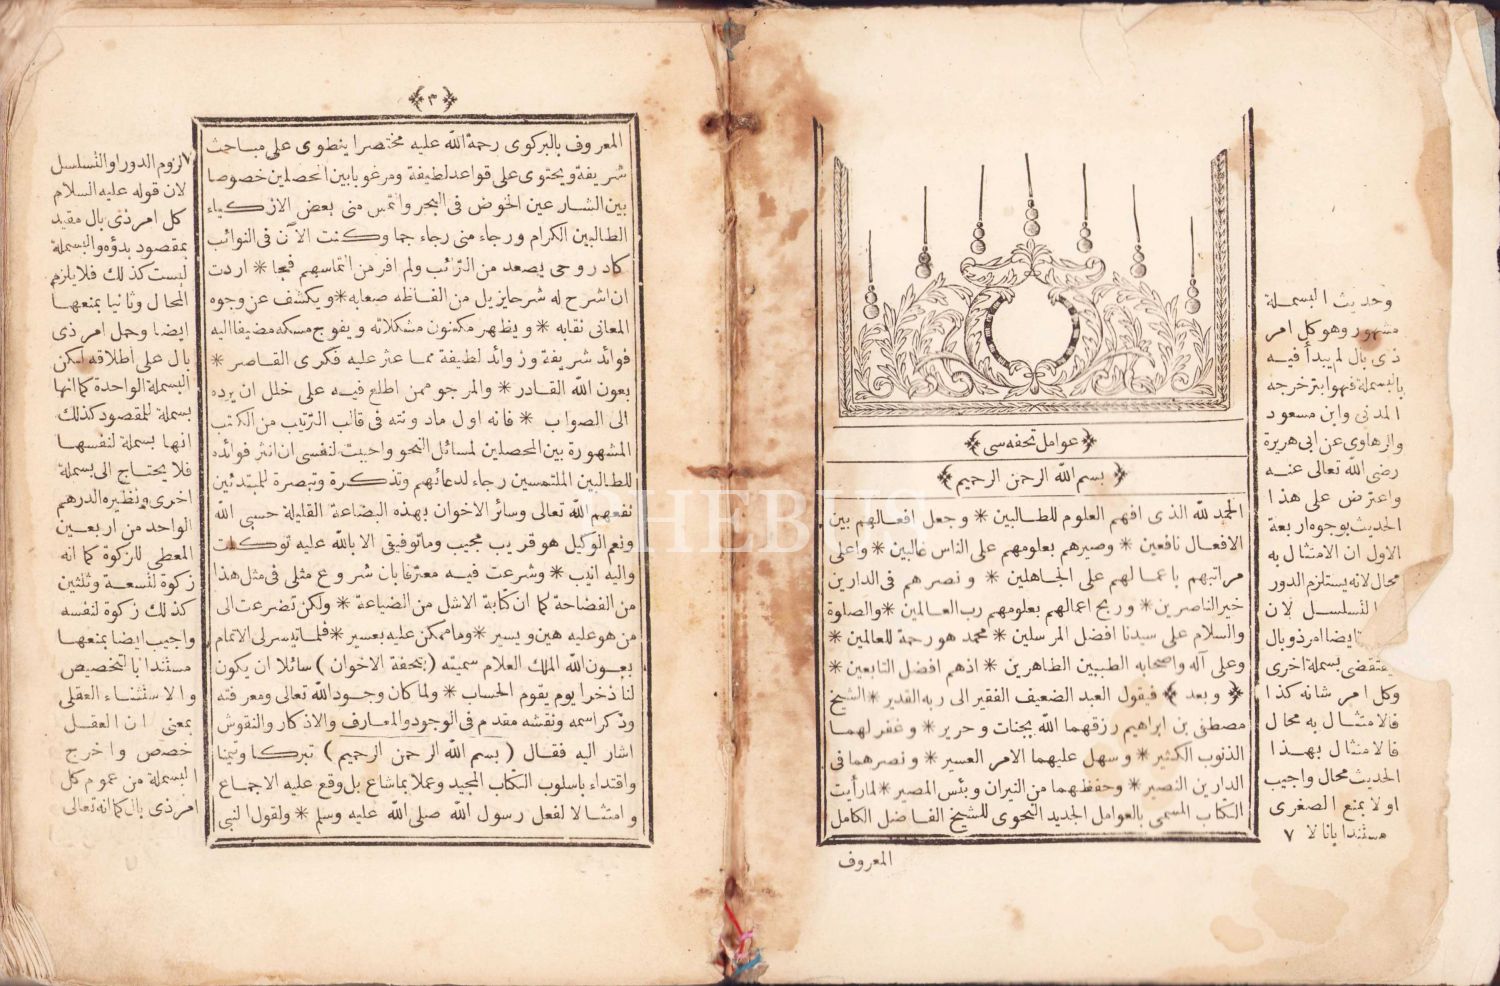 عوامل تحفه سی
بسم الله الرحمن الرحيم
الحمد لله الذى افهم العلوم للطالبين * وجعل افعالهم بين
الافعال نافعين * وصيرهم بعلومهم على الناس غالبين * واعلى
مراتبهم باعمالهم على الجاهلين * ونصرهم فى الدارين
خير الناصرين * وربح اعمالهم بعلومهم رب العالمين * والصلوة
والسلام على سيدنا افضل المرسلين * محمد هو رحمة للعالمين *
وعلى آله واصحابه الطيبين الطاهرين * اذهم افضل التابعين *
﴿ وبعد ﴾ فيقول العبد الضعيف الفقير الى ربه القدير * الشيخ
مصطفى بن ابراهيم رزقهما الله بجنات وحرير * وغفر لهما
الذنوب الكثير * وسهل عليهما الامر العسير * ونصرهما فى
الدارين النصير * وحفظهما من النيران وبئس المصير * لما رأيت
الكتاب المسمى بالعوامل الجديد النحوى للشيخ الفاضل الكامل
المعروف
وحديث البسملة
مشهور وهو كل امر
ذى بال لم يبدأ فيه
بالبسملة فهو ابتر خرجه
المدنى وابن مسعود
والرهاوى عن ابى هريرة
رضى الله تعالى عنه
واعترض على هذا
الحديث بوجوه اربعة
الاول ان الامتثال به
محال لانه يستلزم الدور
التسلسل لان
ايضا امر ذو بال
فيقتضى بسملة اخرى
وكل امر شانه كذا
فالامتثال به محال
فالامتثال بهذا
الحديث محال واجيب
اولا بمنع الصغرى
مستندا بانا لا ٧
٣
المعروف بالبركوى رحمة الله عليه مختصرا ينطوى على مباحث
شريفة ويحتوى على قواعد لطيفة ومرغوبا بين المحصلين خصوصا
بين الشارعين الخوض فى البحر والتمس منى بعض الازكياء
الطالبين الكرام ورجاء منى رجاء جما وكنت الآن فى النوائب
كاد روحى يصعد من الترائب ولم افر من التماسهم فجعا * اردت
ان اشرح له شرحا يزيل من الفاظه صعابه * ويكشف عن وجوه
المعانى نقابه * ويظهر مكنون مشكلاته ويفوح مسكه مضيفا اليه
فوائد شريفة وزوائد لطيفة مما عثر عليه فكرى القاصر *
بعون الله القادر * والمرجو ممن اطلع فيه على خلل ان يرده
الى الصواب * فانه اول ما دونته فى قالب الترتيب من الكتب
المشهورة بين المحصلين لمسائل النحو واحببت لنفسى ان انثر فوائده
للطالبين الملتمسين رجاء لدعائهم وتذكرة وتبصرة للمبتدئين
نفعهم الله تعالى وسائر الاخوان بهذه البضاعة القليلة حسبى الله
ونعم الوكيل هو قريب مجيب وما توفيقى الا بالله عليه توكلت
واليه انيب * وشرعت فيه معترفا بان شروع مثلى فى مثل هذا
من الفضاحة كما ان كتابة الاشل من الضياعة * ولكن تضرعت الى
من هو عليه هين ويسير * وما ممكن عليه بعسير * فلما تيسر لى الاتمام
بعون الله الملك العلام سميته (بتحفة الاخوان) سائلا ان يكون
لنا ذخرا يوم يقوم الحساب * ولما كان وجود الله تعالى ومعرفته
وذكر اسمه ونقشه مقدم فى الوجود والمعارف والاذكار والنقوش
اشار اليه فقال (بسم الله الرحمن الرحيم) تبركا وتيمنا
واقتداء باسلوب الكتاب المجيد وعملا بما شاع بل وقع عليه الاجماع
وامتثالا لفعل رسول الله صلى الله عليه وسلم * ولقول النبى
٧ لزوم الدور او التسلسل
لان قوله عليه السلام
كل امر ذى بال مقيد
بمقصود بدؤه والبسملة
ليست كذلك فلا يلزم
المحال وثانيا بمنعها
ايضا وحمل امر ذى
بال على اطلاقه لكن
البسملة الواحدة كما انها
بسملة للمقصود كذلك
انها بسملة لنفسها
فلا يحتاج الى بسملة
اخرى ونظيره الدرهم
الواحد من اربعين
المعطى للزكوة كما انه
زكوة لتسعة وثلثين
كذلك زكوة لنفسه
واجيب ايضا بمنعها
مستندا بالتخصيص
والاستثناء العقلى
بمعنى ان العقل
خصص واخرج
البسملة من عموم كل
امر ذى بال كما انه تعالى